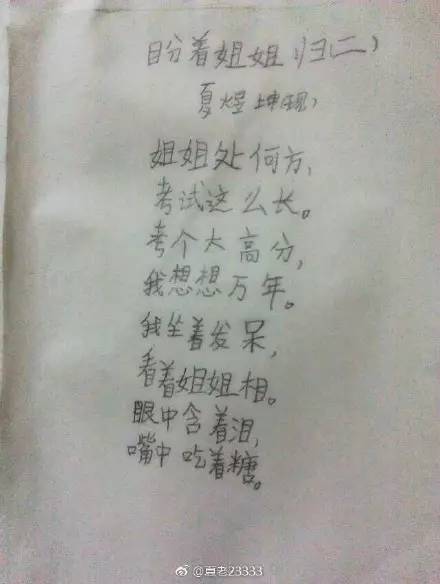 盼着姐姐归(二)
夏煜坤(现)
姐姐处何方,
考试这么长。
考个大高分,
我想想万年。
我坐着发呆,
看着姐姐相。
眼中含着泪,
嘴中吃着糖。
@真老23333